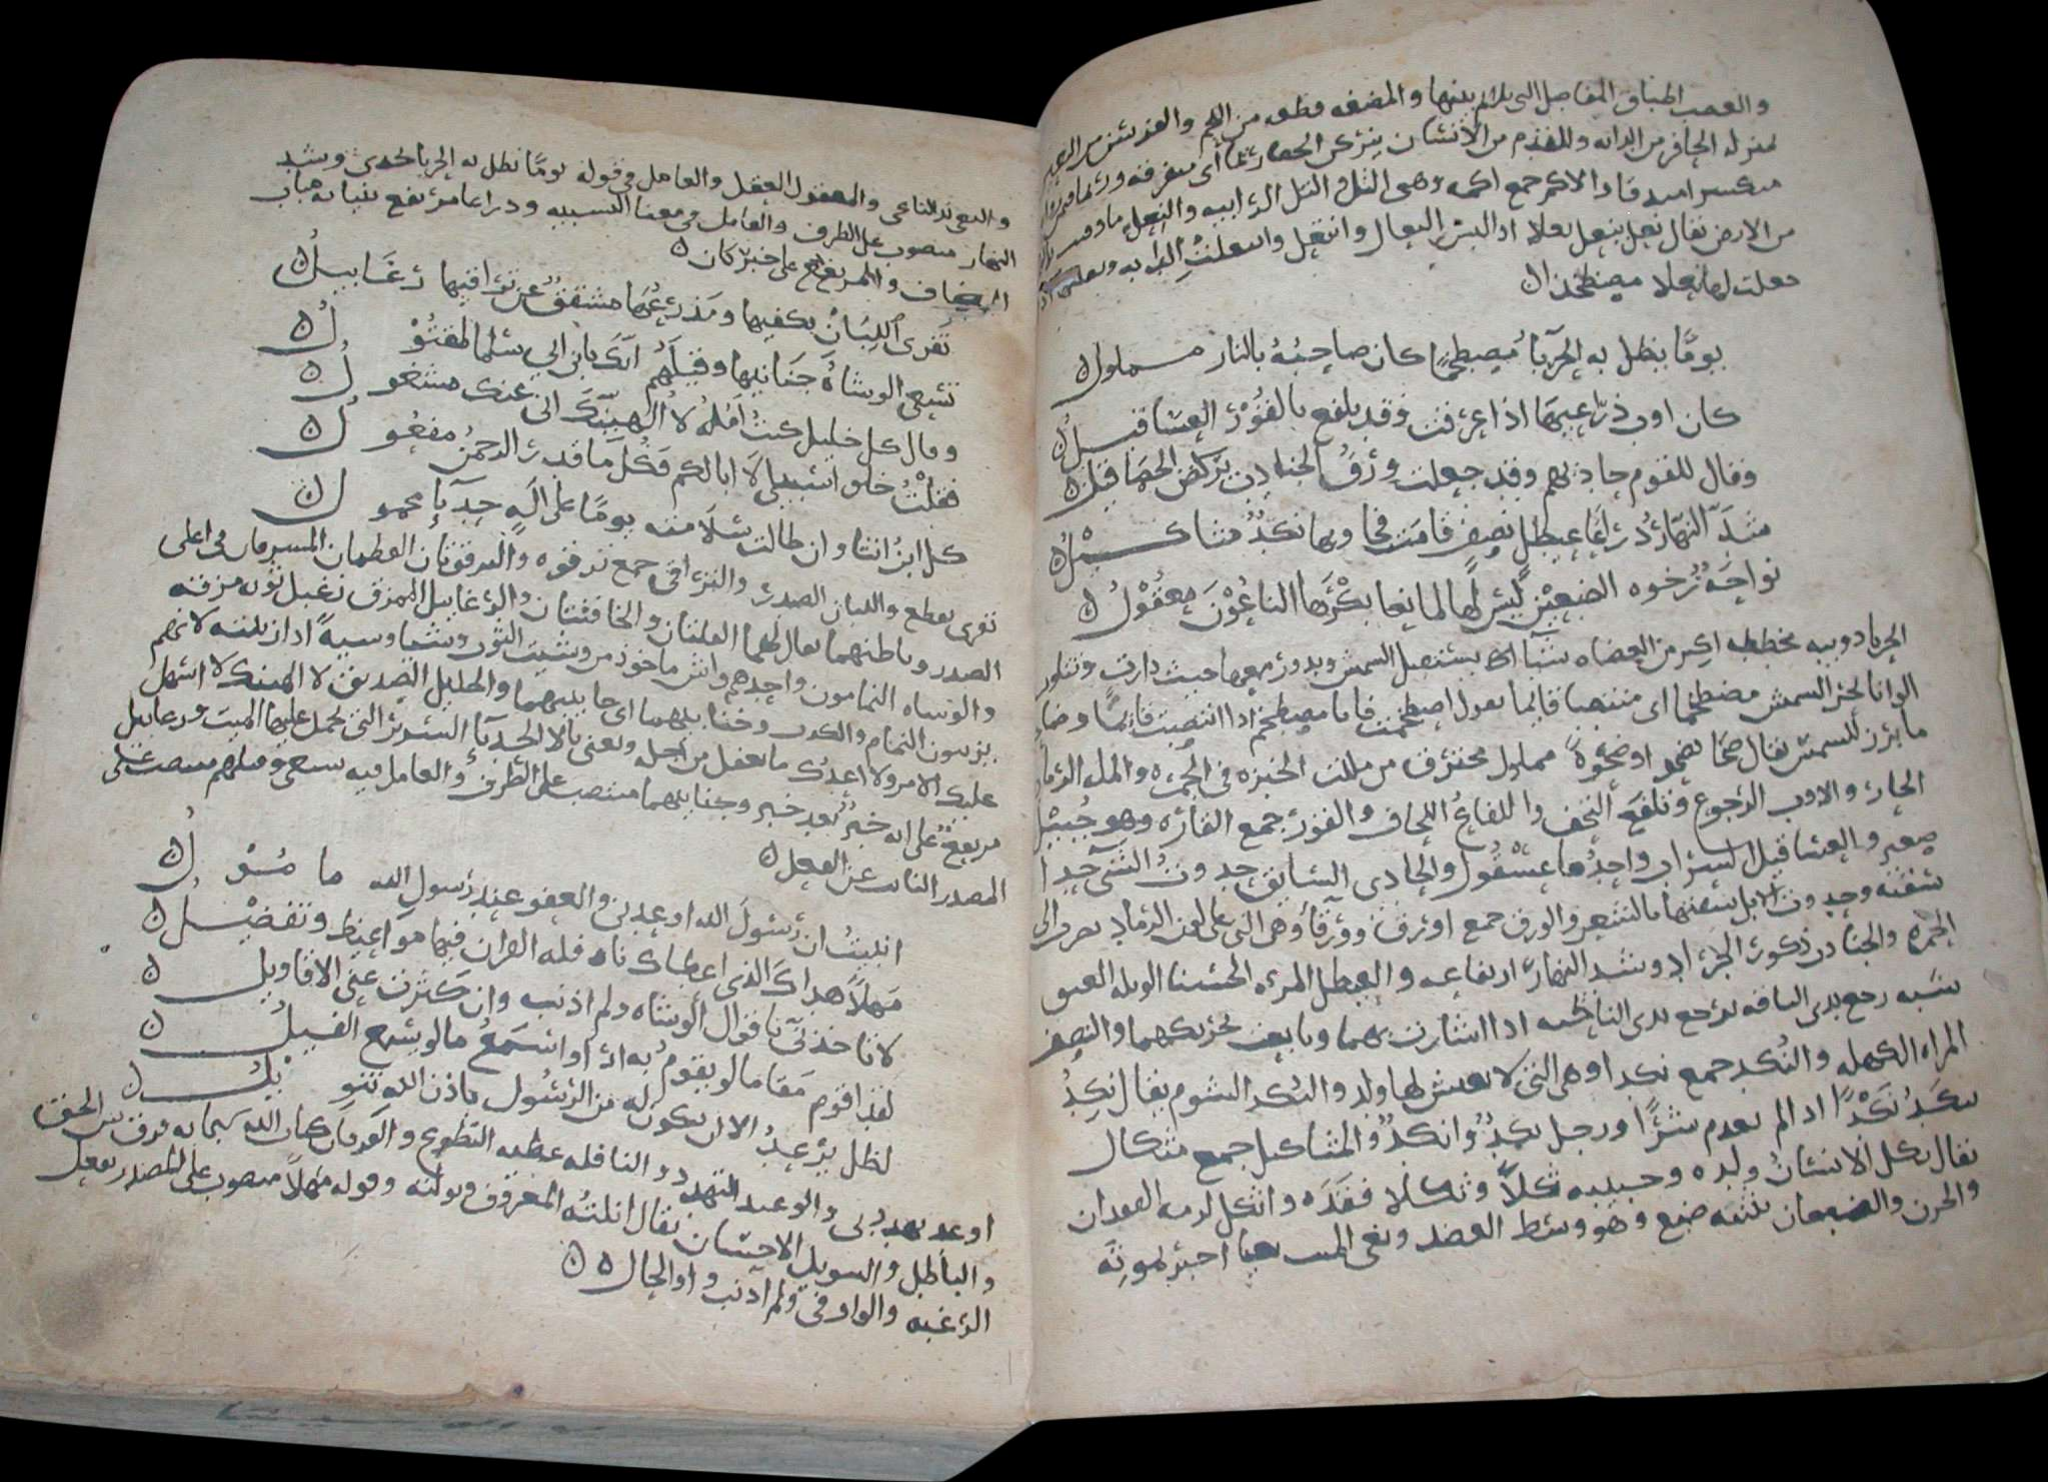 والعصب اطناب المفاصل التى تلائم بينها والمضغه قطعه من اللحم والفرسن من البعير
بمنزله الحافر من الدابه وللقدم من الانسان يتركن الحصا زيما اى متفرقه
فاذا الاكم جمع اكمه وهى التل التل الرابيه والنعل ما وقيت
من الارض يقال نعل ينعل نعلا اذا لبس النعال وانتعل وانعلت الدابه ونعلت اذا
جعلت لها نعلا مصطخذا ن
يومًا يظل به الحرباء مصطخمًا كان ضاحيه بالنار مملول ن
كان اوب ذراعيها اذا عرقت وقد تلفع بالقور العساقيل ن
وقال للقوم حاديهم وقد جعلت ورق الجنادب يركضن الحصا قيلن
شد النهار ذراعا عيطل نصف قامت فجاوبها نكد مثاكيل ن
نواحة رخوه الضبعين ليس لها لما نعا بكرها الناعون معقول ن
الحربا دويبه مخططه اكبر من العضاه شيا اى يستقبل الشمس ويدور معها حيث دارت وتتلون
الوانا لحر الشمس مصطخما اى منتصبا قايما يقول اصطخمت فانا مصطخم اذا انتصبت قايما وضاحيه
ما برز للشمس يقال ضحا يضحو اوضحوة مملول محترق من مللت الخبزه فى الجمره والمل الرماد
الحار والاوب الرجوع وتلفع التحف واللفاع اللحاف والقور جمع القاره وهو جبيل
صغير والعساقيل السراب واحدها عسقول والحادى السايق حدوت الشى حدوا
سقته وحدوت الابل سقتها بالشعر والورق جمع اورق وورقا وهى التى على لون الرماد يضرب الى
الحمره والجنادب ذكور الجراد وشد النهار ارتفاعه والعيطل المراه الحسنا الطويله العنق
شبه رجع يدى الناقه برجع يدى النائحه اذا اشارت بهما وتابعت تحريكهما والنصف
المراه الكهله والنكد جمع نكدا وهى التى لا يعيش لها ولد والنكد الشوم يقال نكد
ينكد نكدًا اذا لم يعدم شرًا ورجل نكد وانكد والمثاكيل جمع مثكال
يقال ثكل الانسان ولده وحبيبه ثكلا وثكلا فقده واثكل لزمه الفقدان
والحزن والضبعان تثنيه ضبع وهو وسط العضد ونعى الميت نعيا اخبر بموته
والنعى الناعى والمعقول العقل والعامل فى قوله يومًا تظل به الحربا وشد
النهار منصوب على الظرف والعامل فيه معنا التشبيه وذراعا مرتفع بنيابه مناب
المضاف والمرتفع على خبر كان ن
تفرى اللبان بكفيها ومدرعها مشقق عن تراقيها رعابيل ن
تسعى الوشاة جنابيها وقيلهم انك يابن ابى سلما لمقتول ن
وقال كل خليل كنت آمله لا الهينك انى عنك مشغول ن
فقلت خلو سبيلى لا ابا لكم فكل ما قدر الرحمن مفعول ن
كل ابن انثا وان طالت سلامته يومًا على آلة حدبآء محمول ن
تفرى تقطع واللبان الصدر والتراقى جمع ترقوه والترقوتان العظمان المشرفان فى اعلى
الصدر وباطنهما يقال لهما القلتان والحاقنتان والرعابيل الممزق رعبل ثوبه مزقه
والوشاه النمامون واحدهم واش ماخوذ من وشيت الثوب وشيا وشيةً اذا زينته لانهم
يزينون النمام والكذب وجنابيهما اى جانبيهما والخليل الصديق لا الهينك لا اشغل
عليك الامر ولا اعدك ما تغفل من اجله ويعنى بالالة الحدبآء السرير التى يحمل عليها الميت ورعابيل
مرتفع على انه خبر بعد خبر وجنابيهما منتصب على الظرف والعامل فيه تسعى وقيلهم منتصب على
المصدر النايب عن الفعل ن
انبيت ان رسول الله اوعدنى والعفو عند رسول الله مامول ن
مهلًا هداك الذى اعطاك نافلة القران فيها مواعيظ وتفضيل ن
لا تاخذنى باقوال الوشاه ولم اذنب وان كثرت عنى الاقاويل ن
لقد اقوم مقاما لو يقوم به ارا واسمع ما لو يسمع الفيل ن
لظل يرعد الا ان يكون له من الرسول باذن الله تنويل ن
اوعد يهددنى والوعيد التهدد والنافله عطيه التطوع والقرءان كتاب الله سبحانه فرق بين الحق
والباطل والتنويل الاحسان يقال انلته المعروف ونولته وقوله مهلًا منصوب على المصدر بفعل
الرغبه والواو فى ولم اذنب واو الحال ن ن